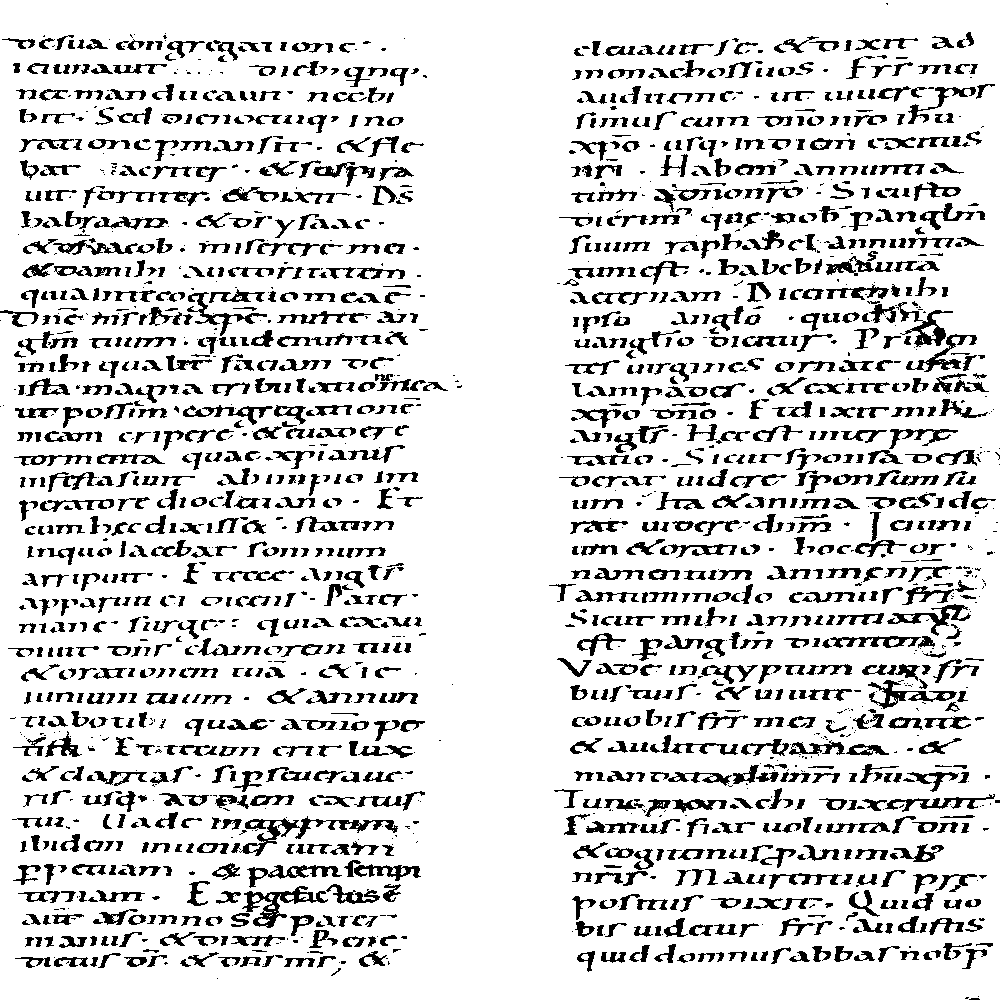 desua congregatione .
ieiunauit dieb; q̄nq;
nec manducauit nec bi
bit · Sed die noctuq; in o
ratione p̄mansit · & fle
bat acriter · & suspira
uit fortiter · & dixit · Ds̄
habraam · & ds̄ ysaac ·
& ds̄ iacob · miserere mei ·
& da mihi auctoritatem ·
quia in te cognatio mea ē ·
Dn̄e ihū xp̄e · mitte an
glm̄ tuum · qui denuntiā
mihi qualit̄ faciam de
ista magna tribulatione mea
ut possim congregationē
meam eripere · & euadere
tormenta quae xp̄ianis
infesta sunt ab impio im
peratore diocletiano · Et
cum hęc dixiss& · statim
in quo iacebat somnum
arripuit · Et ecce angls̄
apparuit ei dicens · Pater
mane surge : quia exau
diuit dn̄s clamorem tuū
& orationem tuā · & ie
iunium tuum · & annun
tiabo tibi quae a dn̄o pe
tisti · Et tecum erit lux
& claritas · si p̄seueraue
ris usq; ad diem exitus
tui · Uade in egyptum
ibidem inuenies uitam
p̄petuam · & pacem sempi
ternam · Exp̄gefactus ē
aut̄ a somno Sc̄s pater
manus · & dixit · Bene
dictus ds̄ & dn̄s ms̄ ; &
eleuauit se · & dixit ad
monachos suos · Fr̄s̄ mei
audite me · ut uiuere pos
simus cum dn̄o nr̄o ihū
xp̄o · usq; in diem exitus
nr̄i · Habem; annuntia
tum a dn̄o nr̄o · Sicut sto
dierim; que nob̄ p̄ anglm̄
suum raphahel annuntia
tum est · habebi uitā
aeternam · Dicente mihi
ipso anglo · quod in e
uanglio dicitur · Pruden
tes uirgines ornate
lampades · & exite obuiā
xp̄o dn̄o · Et dixit mihi
angls̄ · Hec est interpre
tatio · Sicut sponsa desi
derat uidere sponsum su
um · Ita & anima deside
rat uidere dn̄m̄ · Ieiuni
um & oratio · hoc est or
namentum animę nr̄ę ·
Tantummodo eamus fr̄s̄
Sicut mihi annuntiatū
est p̄ anglm̄ dicentem
Vade in egyptum cum fr̄i
bus tuis · & uiuite
couobis fr̄s̄ mei Uenite
& audite uerba mea · &
mandata dn̄i nr̄i ihū xp̄i ·
Tunc monachi dixerunt
Eamus · fiat uoluntas dn̄i ·
& cogitemus p̄ animab;
nr̄is · Mauritius pre
positus dixit · Quid uo
bis uidetur fr̄s̄ · audistis
quid domnus abbas nob̄ p̄